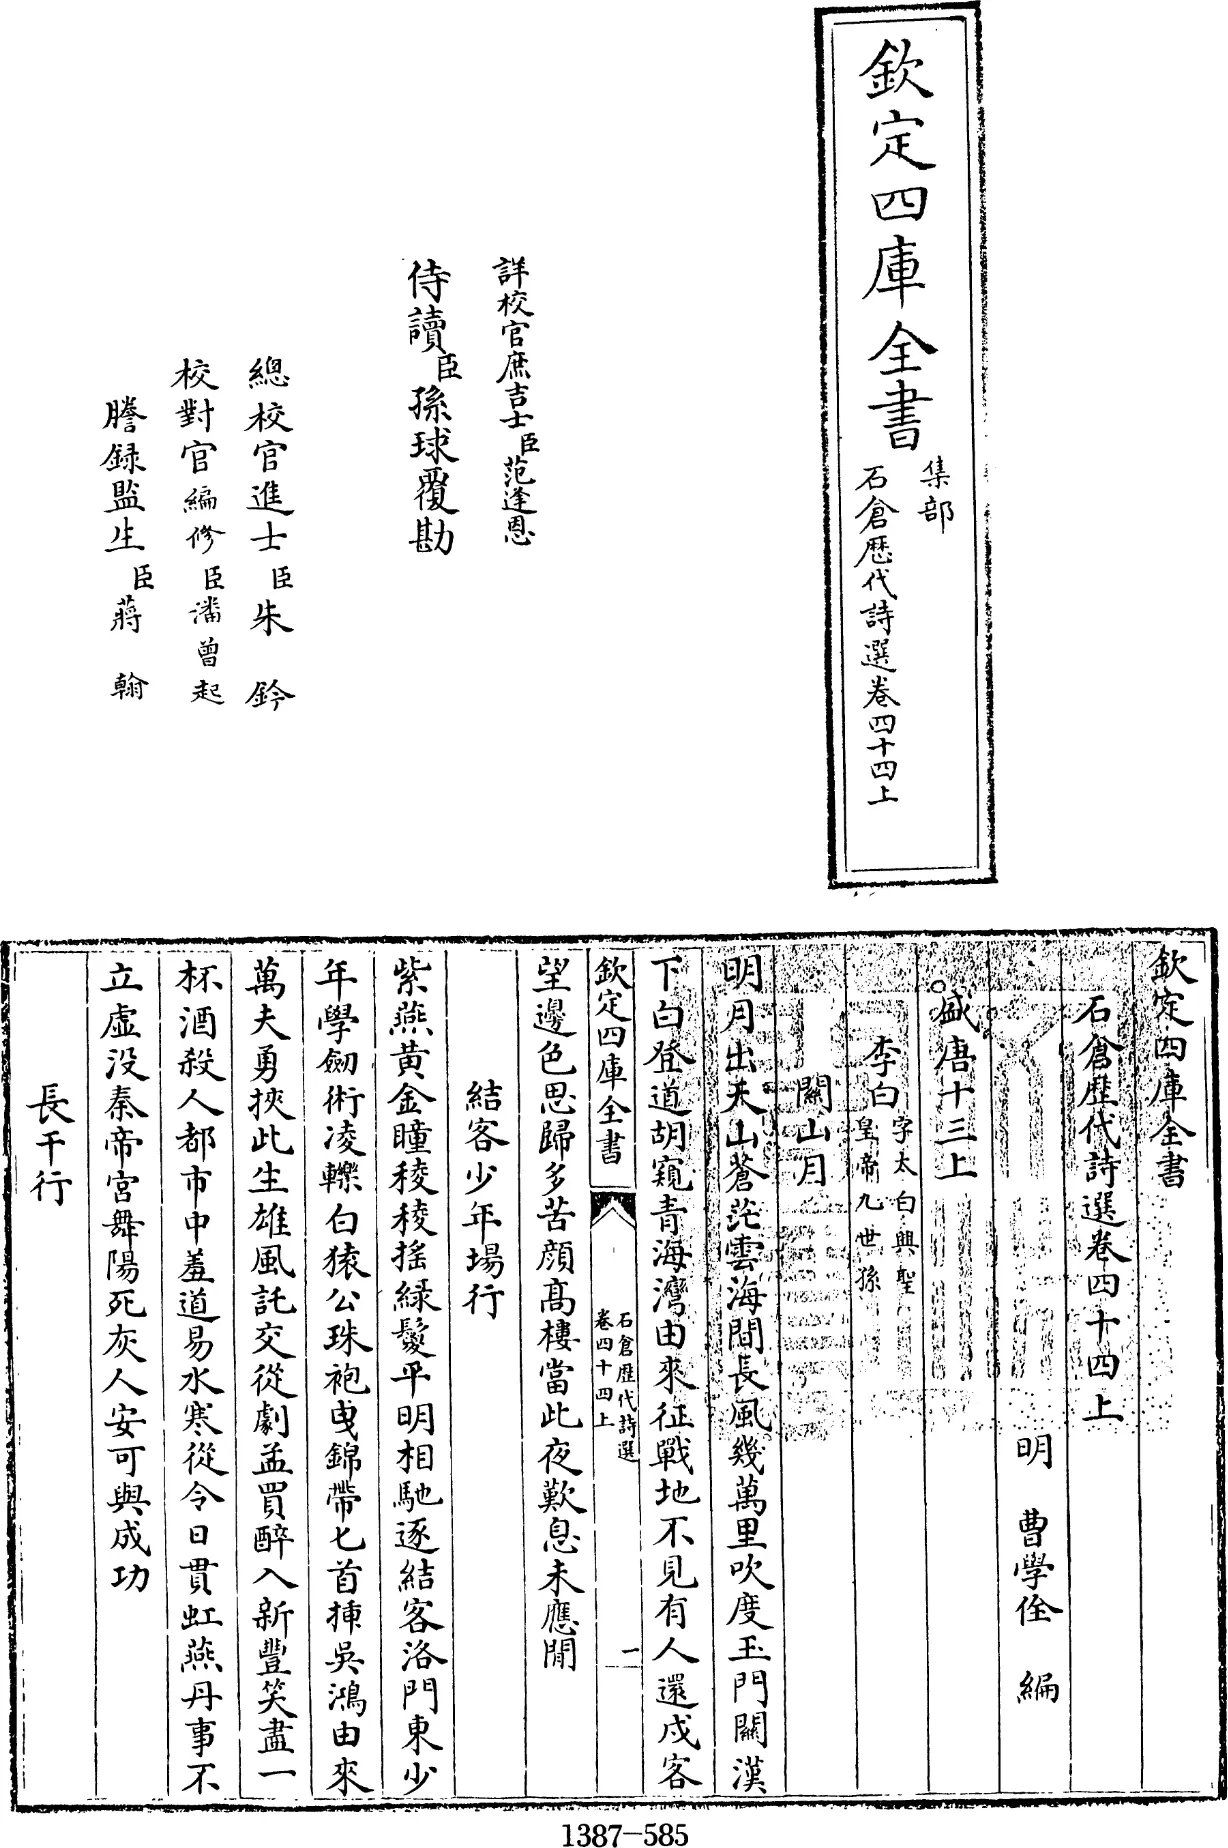 欽定四庫全書
集部
石倉歷代詩選卷四十四上
詳校官庶吉士臣范逢恩
侍讀臣孫球覆勘
總校官進士臣朱鈐
校對官編修臣潘曾起
謄録監生臣蔣翰
欽定四庫全書
石倉歷代詩選卷四十四上
明 曹學佺 編
盛唐十三上
李白字太白興聖
皇帝九世孫
關山月
明月出天山蒼茫雲海間長風幾萬里吹度玉門關漢
下白登道胡窺青海灣由來征戰地不見有人還戍客
欽定四庫全書
石倉歷代詩選
卷四十四上
一
望邊色思歸多苦顔高樓當此夜歎息未應閒
結客少年場行
紫燕黃金瞳稜稜揺緑鬉平明相馳逐結客洛門東少
年學劒術凌轢白猿公珠袍曳錦帶匕首揷吳鴻由來
萬夫勇挾此生雄風託交從劇孟買醉入新豐笑盡一
杯酒殺人都市中羞道易水寒從令日貫虹燕丹事不
立虛没秦帝宫舞陽死灰人安可與成功
長干行
1387-585